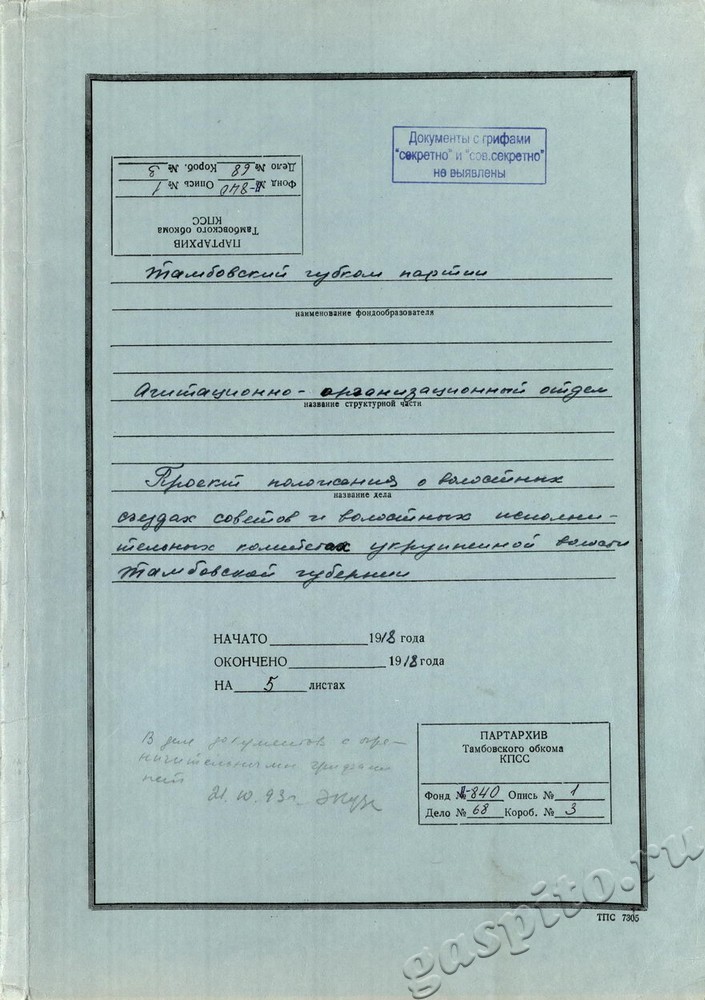 Документы с грифами
"секретно" и "сов.секретно"
не выявлены
ПАРТАРХИВ
Тамбовского обкома
КПСС
Фонд № П-840 Опись № 1
Дело № 68 Короб. № 3
Тамбовский губком партии
наименование фондообразователя
Агитационно-организационный отдел
название структурной части
Проект положения о волостных
название дела
съездах советов и волостных исполни-
тельных комитетах укрупненной волости
Тамбовской губернии
НАЧАТО 1918 года
ОКОНЧЕНО 1918 года
НА 5 листах
В деле документов с огра-
ничительными грифами
нет
21.10.93г.
ПАРТАРХИВ
Тамбовского обкома
КПСС
Фонд № П-840 Опись № 1
Дело № 68 Короб. № 3
ТПС 7305
gaspito.ru